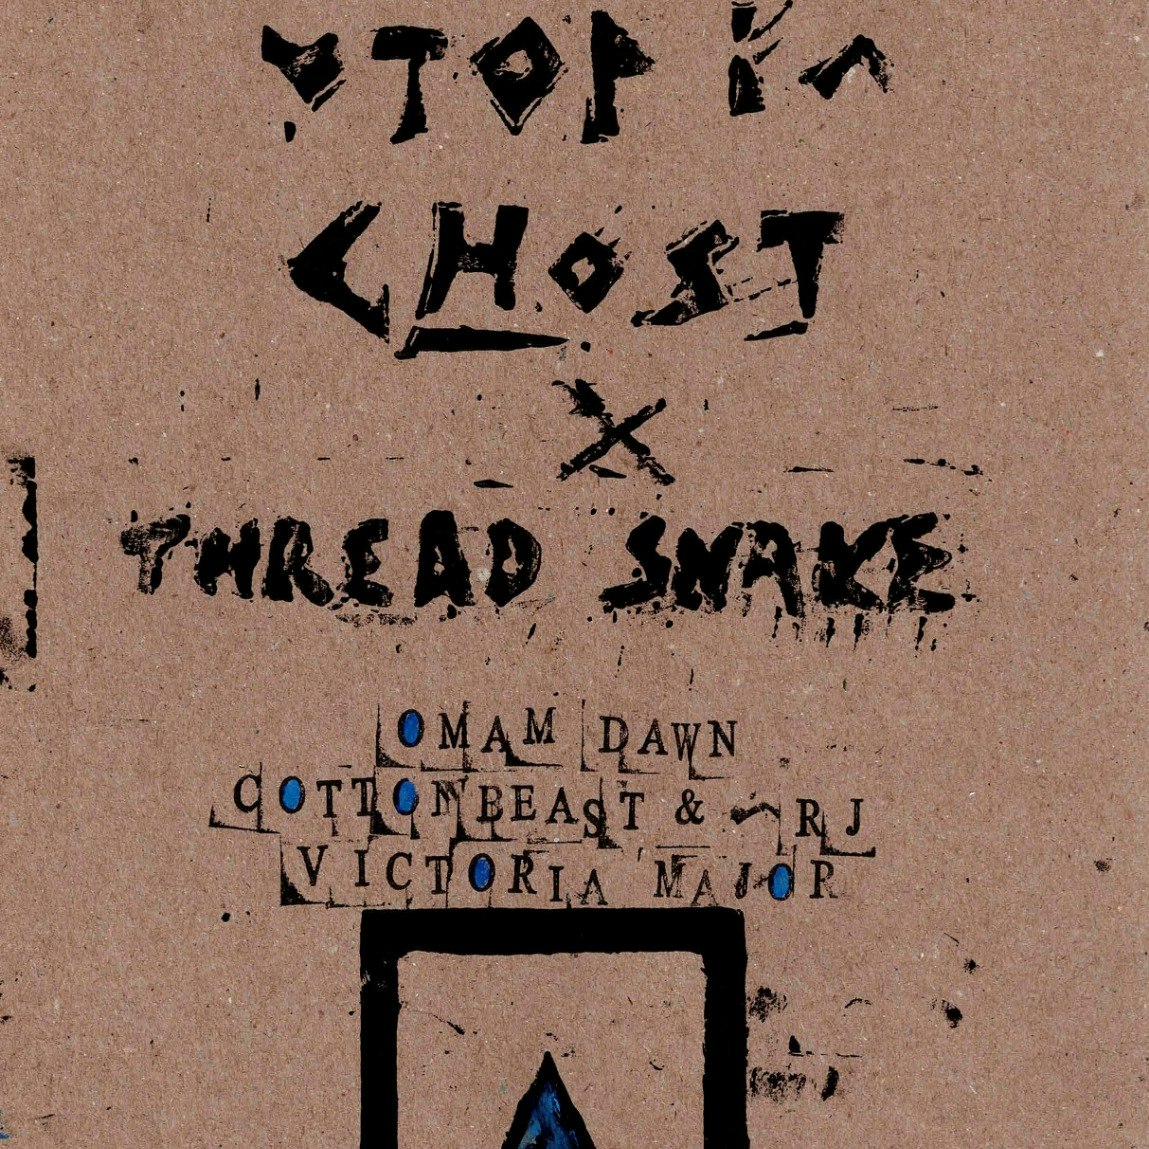 GHOST
X
THREAD SNAKE
OMAM DAWN
COTTONBEAST & RJ
VICTORIA MAJOR